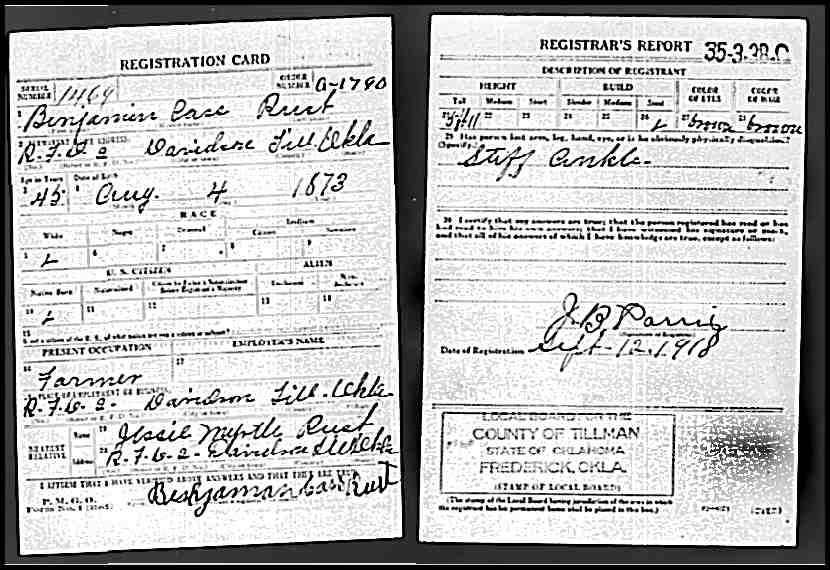 REGISTRATION CARD
SERIAL NUMBER 1469
ORDER NUMBER A-1790
1 Benjamin Case Rust
2 PERMANENT HOME ADDRESS:
R.F.D. 2 Davidson Till. Okla
Age in Years Date of Birth
3 45 4 Aug. 4 1873
RACE
White Negro Oriental Indian
Citizen Noncitizen
5 6 7 8 9
U. S. CITIZEN ALIEN
Native Born Naturalized Citizen by Father's Naturalization Before Registrant's Majority Declarant Non-declarant
10 11 12 13 14
15
If not a citizen of the U. S., of what nation are you a citizen or subject?
PRESENT OCCUPATION EMPLOYER'S NAME
16 17
Farmer
PLACE OF EMPLOYMENT OR BUSINESS:
R.F.D. 2. Davidson Till. Okla
NEAREST RELATIVE
Name 19 Jessie Myrtle Rust
Address 20 R.F.D. 2- Davidson Okla
I AFFIRM THAT I HAVE VERIFIED ABOVE ANSWERS AND THAT THEY ARE TRUE
P. M. G. O.
Form No. 1 Benjaman Case Rust
REGISTRAR'S REPORT 35-3-38 C
DESCRIPTION OF REGISTRANT
HEIGHT BUILD COLOR OF EYES COLOR OF HAIR
Tall Medium Short Slender Medium Stout
21 22 23 24 25 26 27 brown 28 brown
29 Has person lost arm, leg, hand, eye, or is he obviously physically disqualified?
(Specify.)
Stiff Ankle-
30 I certify that my answers are true; that the person registered has read or has
had read to him his own answers; that I have witnessed his signature or mark,
and that all of his answers of which I have knowledge are true, except as follows:
J. B.
Date of Registration Sept. 12, 1918
LOCAL BOARD FOR THE
COUNTY OF TILLMAN
STATE OF OKLAHOMA
FREDERICK, OKLA.
(STAMP OF LOCAL BOARD)
(The stamp of the Local Board having jurisdiction of the area in which
the registrant has his permanent home shall be placed in this box.)
(OVER)